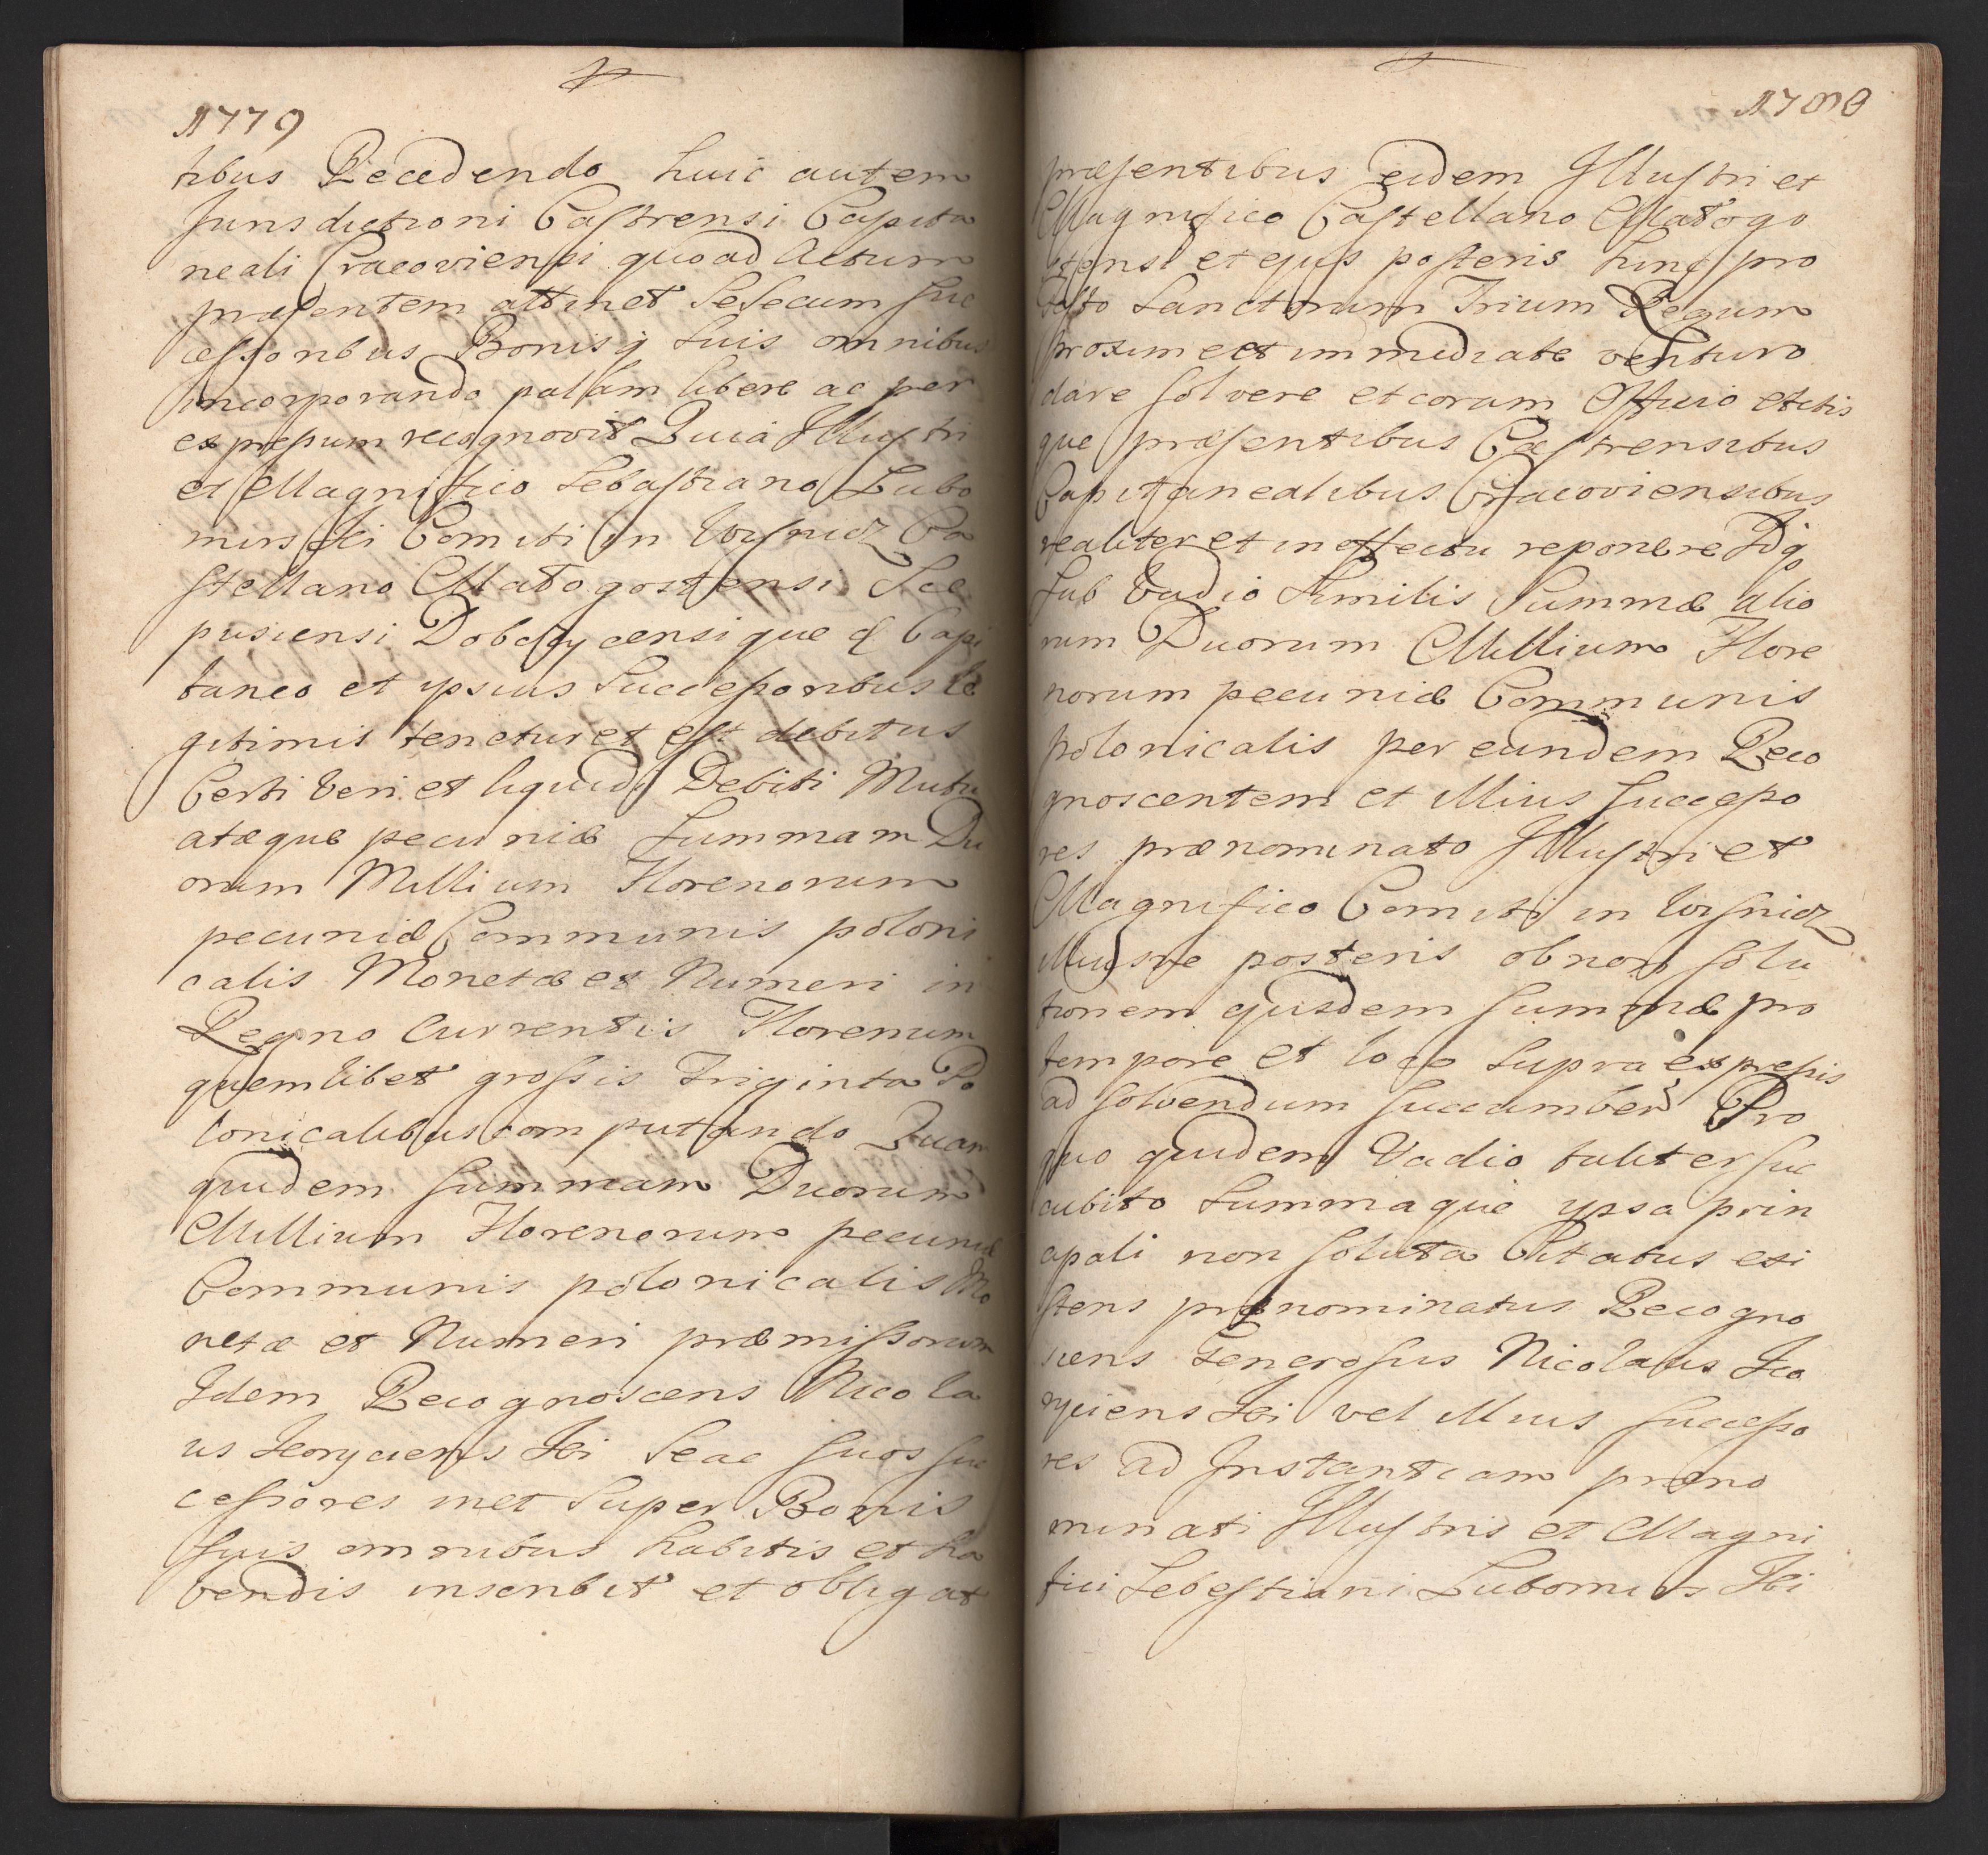 1779
tibus Recedendo huic autem
Jurisdictioni Castrensi Capita
neali Cracoviensi quoad Actum
præsentem attinet Se Secum suc
cessoribus Bonisq suis omnibus
incorporando palam libere ac per
expressum recognovit Quia Illustri
et Magnifico Sebastiano Lubo
mirski Comiti in Wisnicz Ca
stellano Małogostensi Sce
pusiensi Dobczycensique & Capi
taneo et ipsius Successoribus le
gitimis tenetur et est debitus
Certi veri et liquidi Debiti Mutu
atæque pecuniæ Summam Du
orum Millium Florenorum
pecuniæ Communis poloni
calis Monetæ et Numeri in
Regno Currentis Florenum
quemlibet grossis Triginta Po
lonicalibus computando Quam
quidem summam Duorum
Millium Florenorum pecuniæ
Communis polonicalis Mo
netæ et Numeri præmissorum
Idem Recognoscens Nicola
us Koryciens ski Se ac suos suc
cessores met Super Bonis
suis omnibus habitis et ha
bendis inscribit et obligat
1780
præsentibus eidem Illustri et
Magnifico Castellano Małogo
stensi et ejus posteris hinc pro
festo Sanctorum Trium Regum
proxime et immediate venturo
dare solvere et coram Officio Actis
que præsentibus Castrensibus
Capitanealibus Cracoviensibus
realiter et in effectu reponere Idq
sub Vadio Similis Summæ alio
rum Duorum Millium Flore
norum pecuniæ Communis
polonicalis per eundem Reco
gnoscentem et illius successo
res prænominato Illustri et
Magnifico Comiti in Wisnicz
illiusve posteris ob non solu
tionem ejusdem summæ pro
tempore et loco supra expressis
ad solvendum succumben Pro
quo quidem Vadio taliter suc
cubito Summaque ipsa prin
cipali non soluta Citatus exi
stens prænominatus Recogno
scens Generosus Nicolaus Ko
ryciens ski vel illius successo
res ad Instantiam præno
minati Illustris et Magni
fici Sebestiani Lubomirs ski